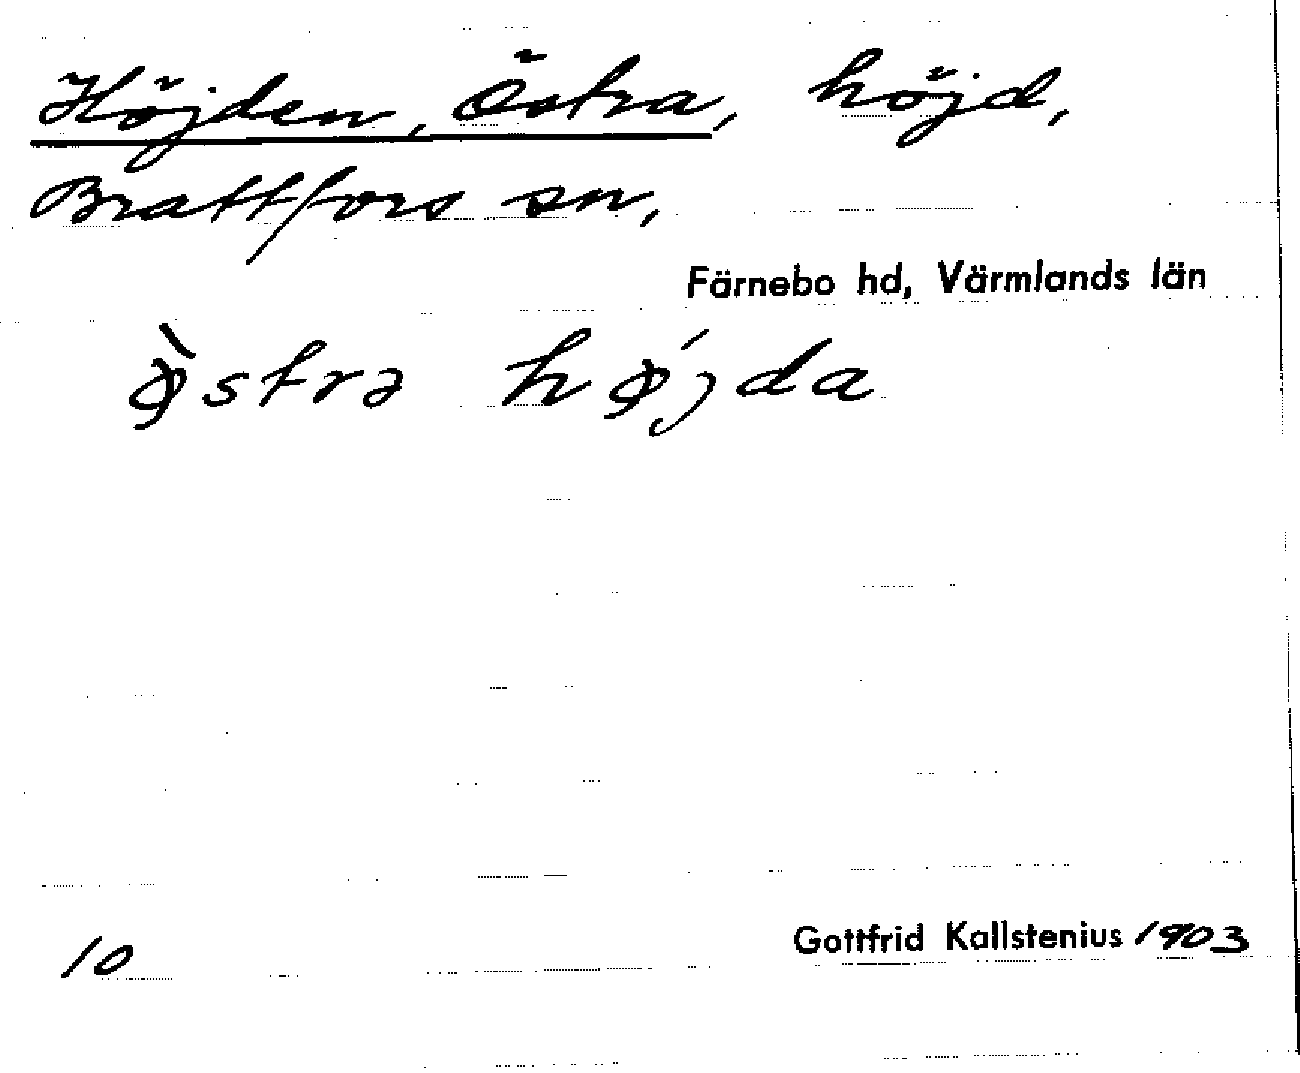 Höjden, Östra, höjd,
Brattfors sn,
Färnebo hd, Värmlands län
ø̀strə hǿjda
10
Gottfrid Kallstenius 1903